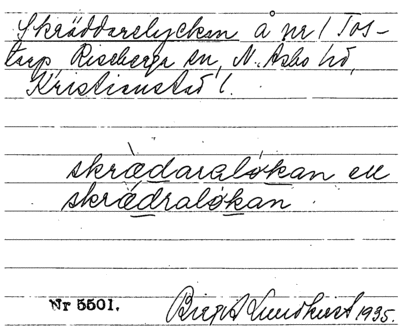 Skräddarelyckan å nr 1 Tos-
tarp, Riseberga sn, N. Åsbo hd,
Kristianstad l.
skrædaralókan el
skrædralókan.
Nr 5501.
Birgit Lundkvist 1935.